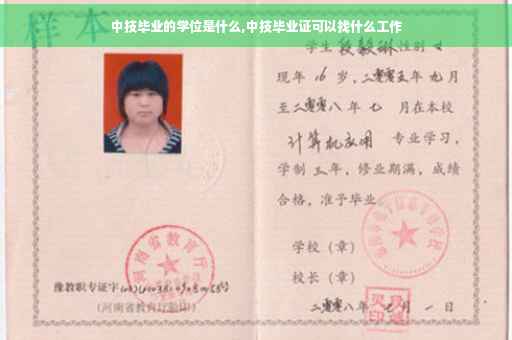 中技毕业的学位是什么,中技毕业证可以找什么工作
样本
学生 段毅琳 性别 女
现年 16 岁,二零零五年 九 月
至二零零八年 七 月在本校
计算机应用 专业学习,
学制 三 年,修业期满,成绩
合格,准予毕业
学校(章)
校长(章)
二零零八年 七 月 一 日
河南省教育厅
豫教职专证字
(河南省教育厅验印)